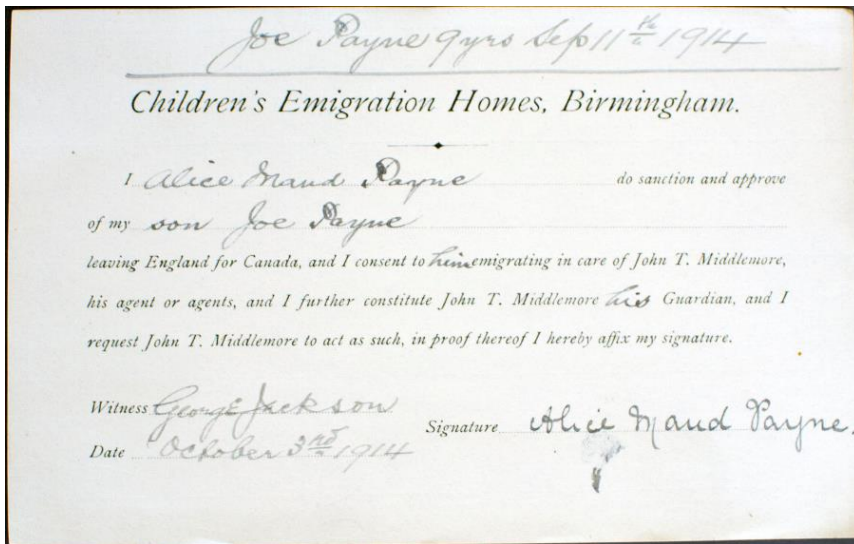 Joe Payne 9 yrs Sep 11th 1914
Children's Emigration Homes, Birmingham.
I Alice Maud Payne do sanction and approve
of my son Joe Payne
leaving England for Canada, and I consent to him emigrating in care of John T. Middlemore,
his agent or agents, and I further constitute John T. Middlemore his Guardian, and I
request John T. Middlemore to act as such, in proof thereof I hereby affix my signature.
Witness George Jackson
Signature Alice Maud Payne.
Date October 3rd 1914